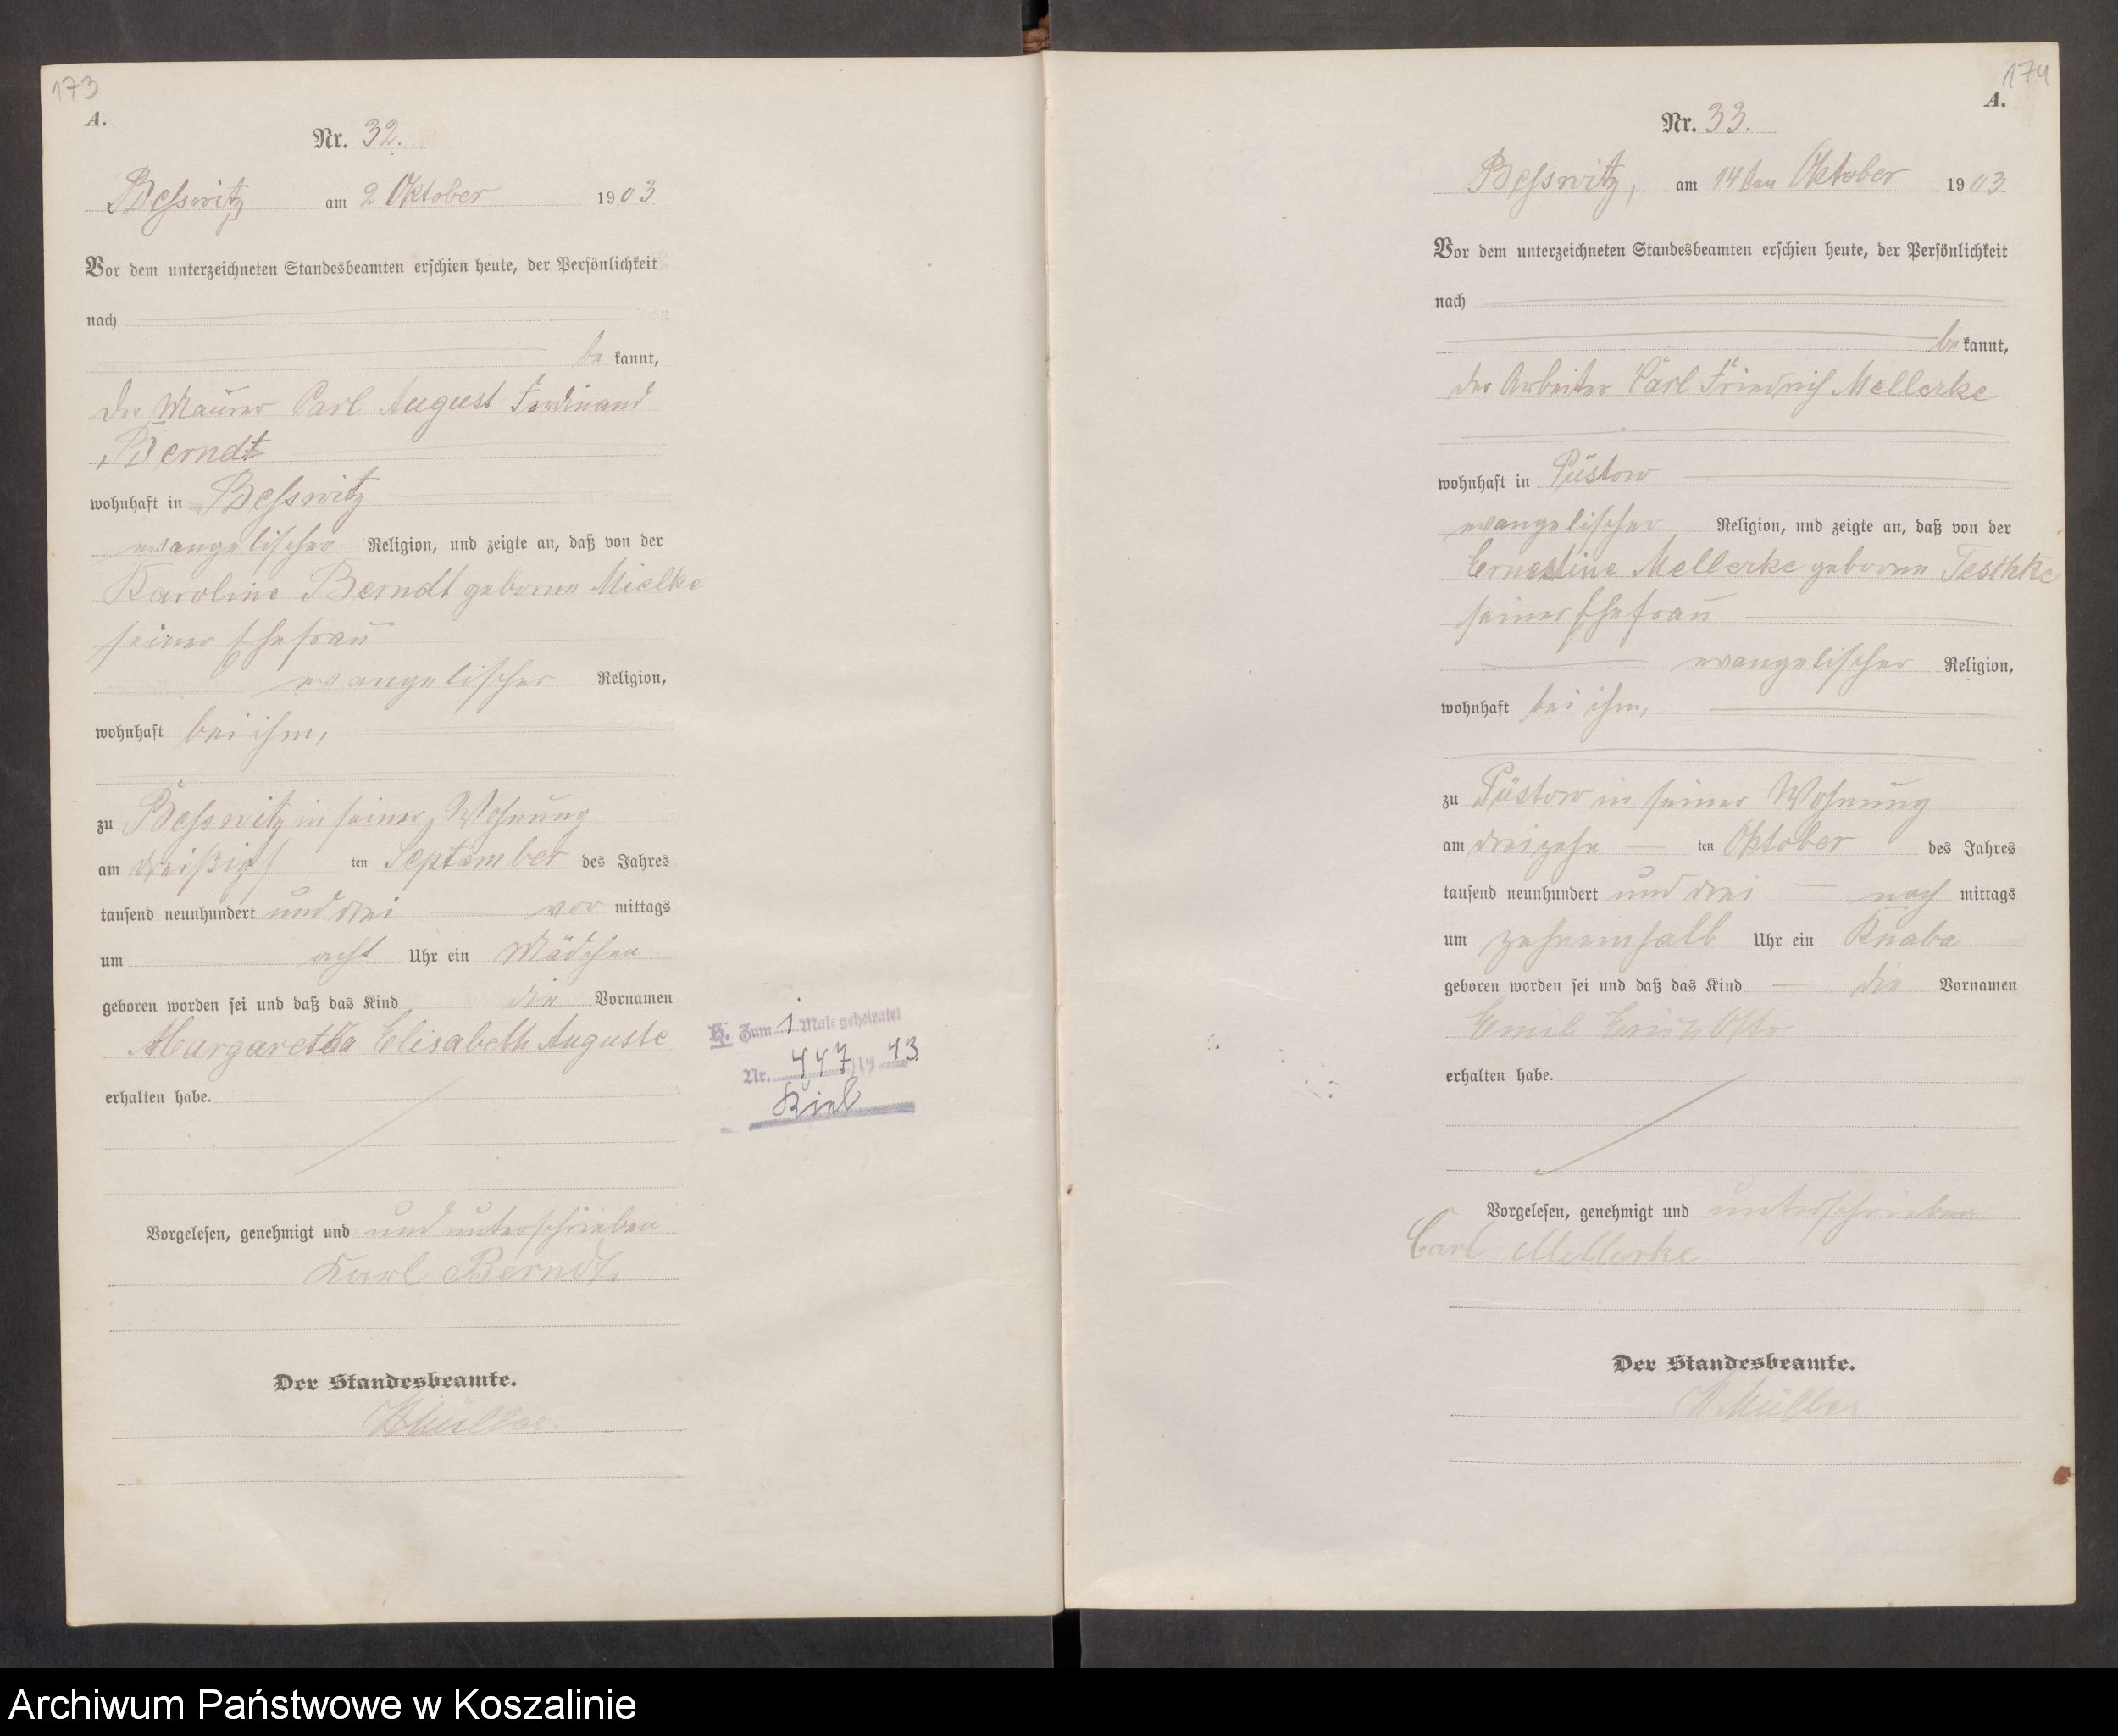 173
A.
Nr. 32.
Besswitz am 2 Oktober 1903
Vor dem unterzeichneten Standesbeamten erschien heute, der Persönlichkeit
nach
be kannt,
der Maurer Carl August Ferdinand
Berndt
wohnhaft in Besswitz
evangelischer Religion, und zeigte an, daß von der
Karoline Berndt geborne Mielke
seiner Ehefrau
evangelischer Religion,
wohnhaft bei ihm,
zu Besswitz in seiner Wohnung
am dreißigs ten September des Jahres
tausend neunhundert und drei vor mittags
um acht Uhr ein Mädchen
geboren worden sei und daß das Kind die Vornamen
Margaretha Elisabeth Auguste
erhalten habe.
H. Zum 1 Male geheiratet
Nr. 447/19 43
Kiel
Vorgelesen, genehmigt und und unterschrieben
Karl Berndt.
Der Standesbeamte.
Müller
174
A.
Nr. 33.
Besswitz, am 14ten Oktober 1903
Vor dem unterzeichneten Standesbeamten erschien heute, der Persönlichkeit
nach
be kannt,
der Arbeiter Carl Friedrich Mellerke
wohnhaft in Püstow
evangelischer Religion, und zeigte an, daß von der
Ernestine Mellerke geborne Teschke
seiner Ehefrau
evangelischer Religion,
wohnhaft bei ihm,
zu Püstow in seiner Wohnung
am dreizehn ten Oktober des Jahres
tausend neunhundert und drei nach mittags
um zehneinhalb Uhr ein Knabe
geboren worden sei und daß das Kind die Vornamen
Emil Erich Otto
erhalten habe.
Vorgelesen, genehmigt und unterschrieben
Carl Mellerke
Der Standesbeamte.
Müller
Archiwum Państwowe w Koszalinie